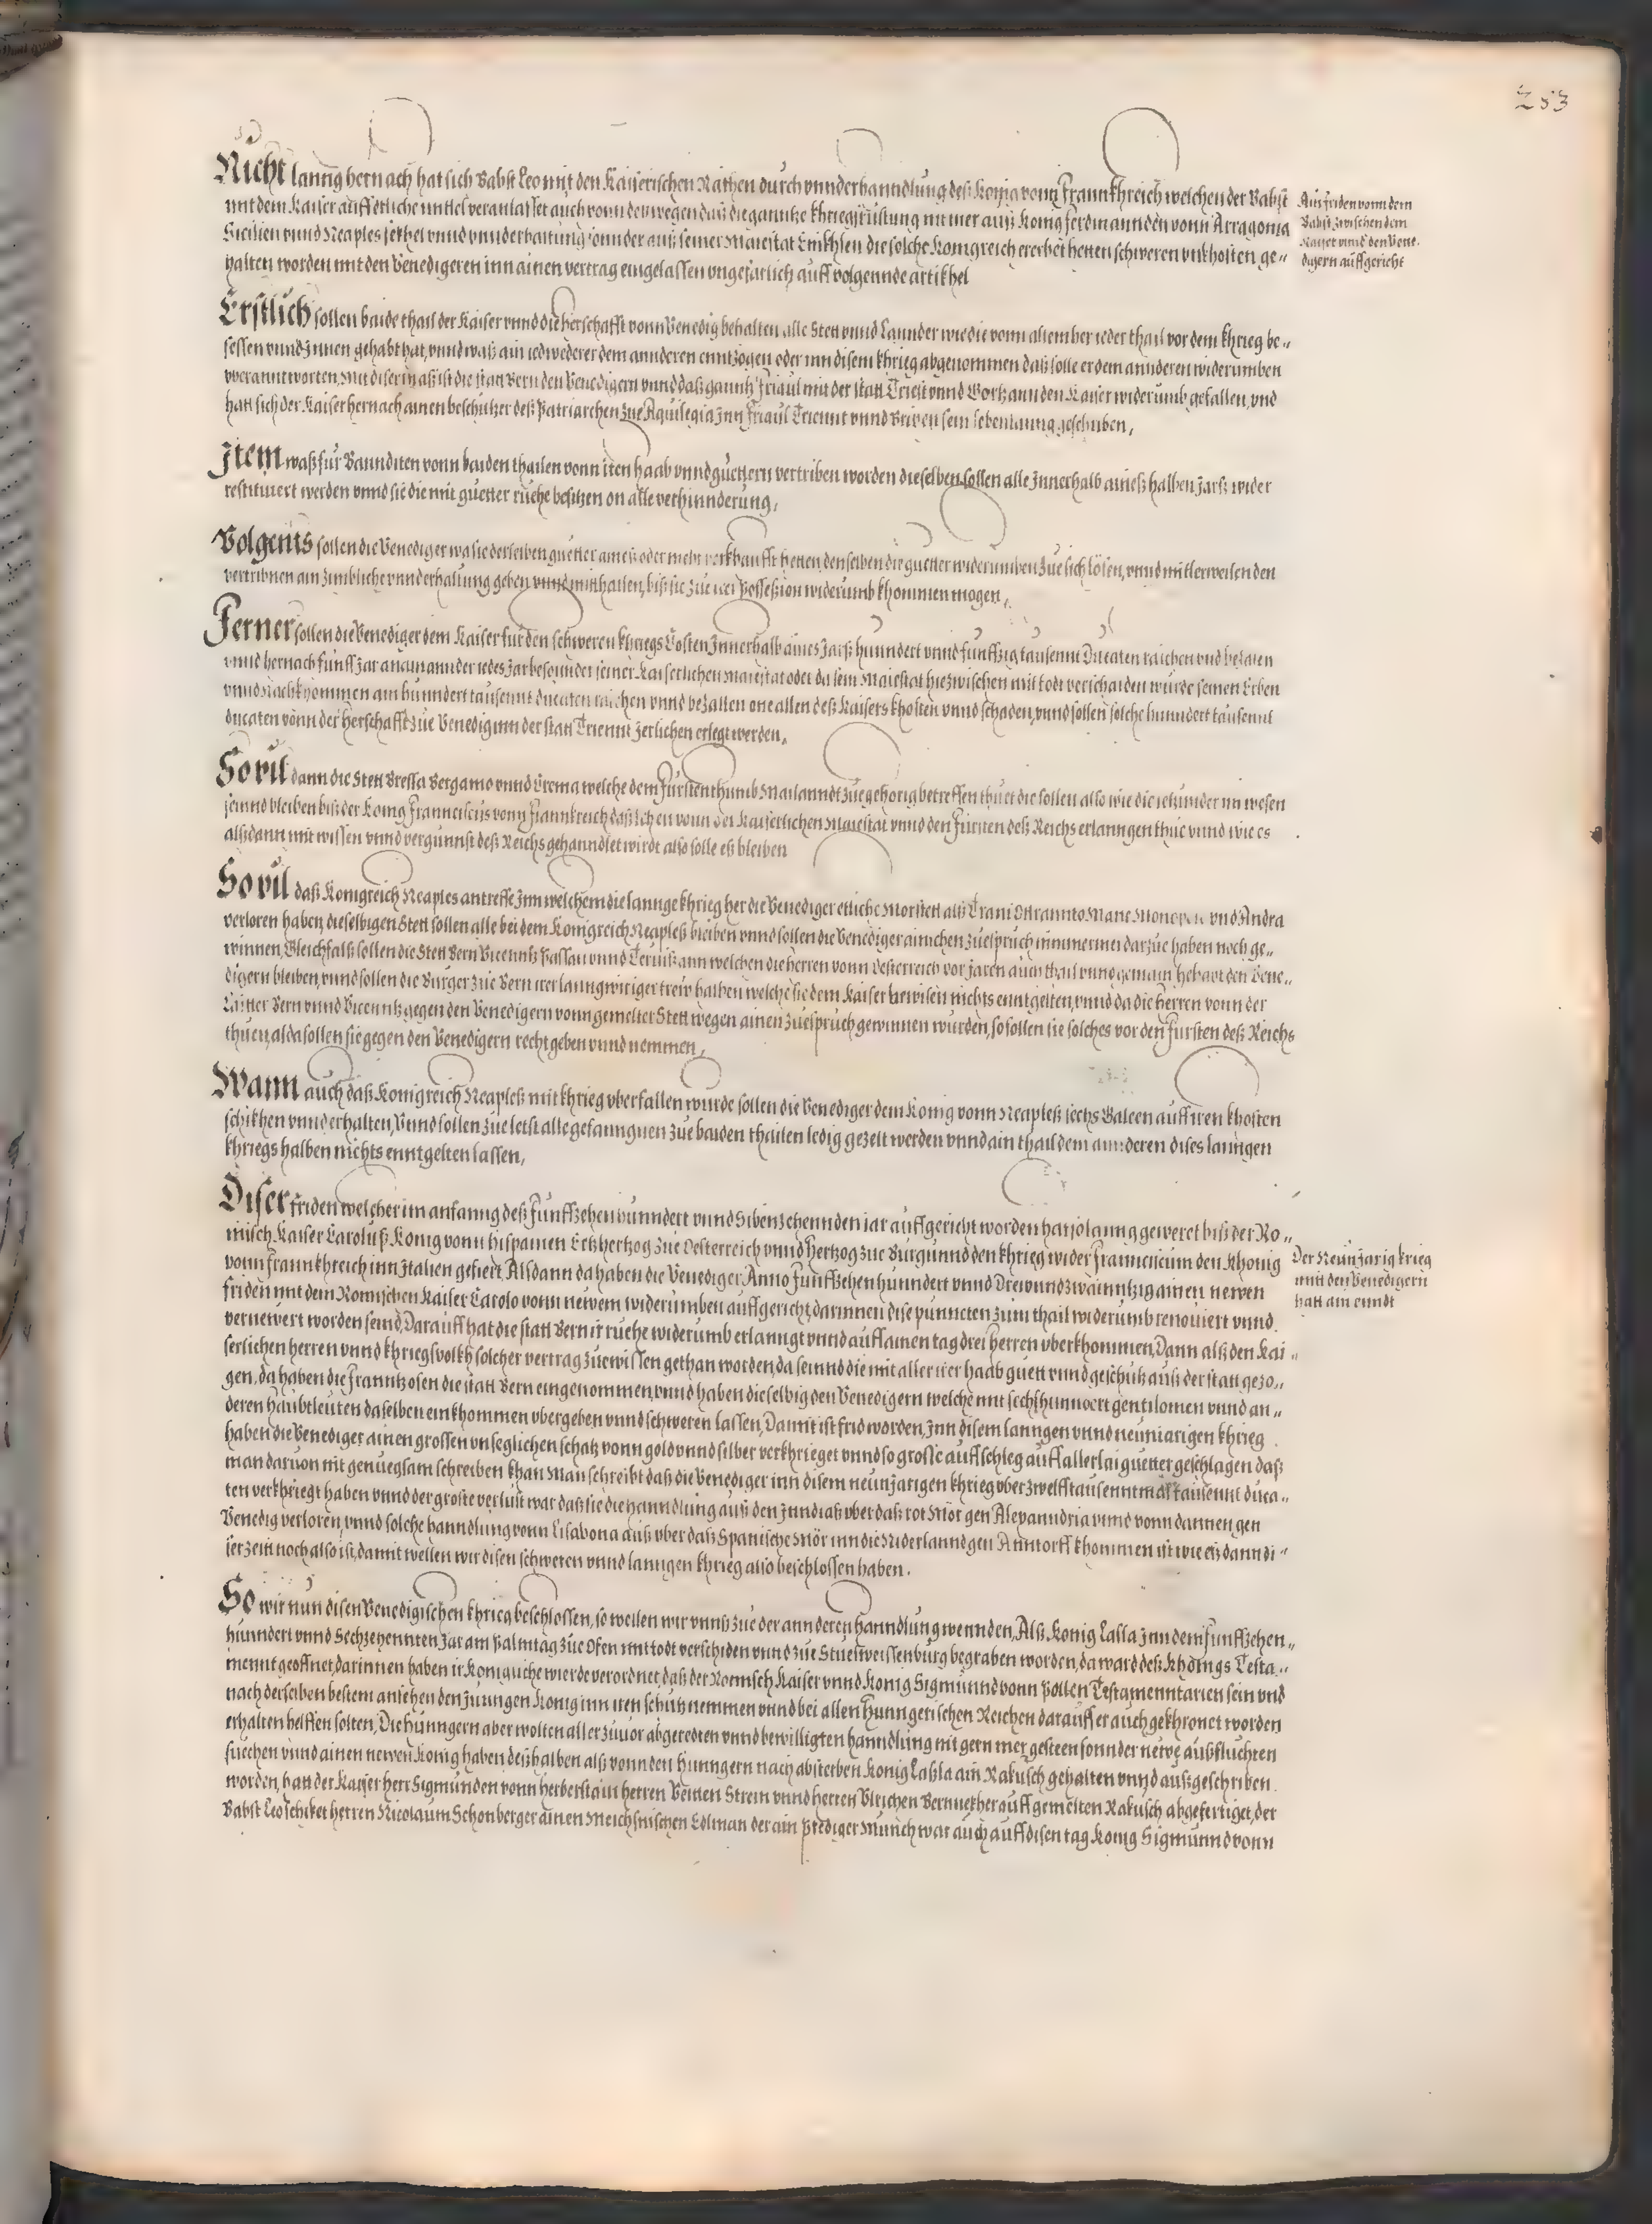 253
Nicht lanng hernach hat sich Babst Leo mit den Kaiserischen Räthen durch vnnderhanndlung deß Königs vonn Frannkhreich welchen der Babst
mit dem Kaiser auff etliche mittel veranlasset auch vonn deßwegen daß die ganntze khriegsrüstung nit mer auß König Ferdinannden vonn Arragonia
Sicilien vnnd Neaples sekhel vnnd vnnderhaltung sonnder auß seiner Maiestat Enikhlen die solche Königreich ererbet hetten schweren vnkhosten ge„
halten worden mit den Venedigeren inn ainen vertrag eingelassen vngefarlich auff volgennde artikhel
Ain friden vonn dem
Babst zwischen dem
Kaiser vnnd den Vene„
digern auffgericht
Erstlich sollen baide thail der Kaiser vnnd die herschafft vonn Venedig behalten alle Stett vnnd Lannder wie die vonn altem her ieder thail vor dem khrieg be„
sessen vnnd Jnnen gehabt hat, vnnd waß ain iedwederer dem annderen enntzogen oder inn disem khrieg abgenommen daß solle er dem annderen widerumben
vberanntworten, mit diser maß ist die statt Bern den Venedigern vnnd daß ganntz Friaul mit der statt Triest vnnd Gortz ann den Kaiser widerumb gefallen, vnd
hatt sich der Kaiser hernach ainen beschützer deß Patriarchen zue Aquilegia Jnn Friaul Triennt vnnd Brixen sein lebenlanng geschriben,
Jtem waß für Bannditen vonn baiden thailen vonn iren haab vnnd güettern vertriben worden dieselben sollen alle Jnnerhalb aineß halben Jarß wider
restituiert werden vnnd sie die mit guetter ruehe besitzen on alle verhinnderung,
Volgents sollen die Venediger wa sie derselben güetter aineß oder mehr verkhaufft hetten, denselben die güetter widerumben zue sich lösen, vnnd mitlerweilen den
vertribnen ain zimbliche vnnderhaltung geben vnnd mitthailen, biß sie zue irer Possession widerumb khommen mögen,
Ferner sollen die Venediger dem Kaiser für den schweren khriegs Costen Jnnerhalb aines Jarß hunndert vnnd fünffzig tausennt Ducaten raichen vnd bezalen
vnnd hernach fünff Jar anainannder iedes Jar besonnder seiner Kaiserlichen Maiestat oder da sein Maiestat hiezwischen mit todt verschaiden wurde seinen Erben
vnnd Nachkhommen ain hunndert tausennt ducaten raichen vnnd bezallen one allen deß Kaisers khosten vnnd schaden, vnnd sollen solche hunndert tausennt
ducaten vonn der herschafft zue Venedig inn der statt Triennt Jerlichen erlegt werden,
Sovil dann die Stett Bressa Bergamo vnnd Crema welche dem Fürstenthumb Mailanndt zuegehörig betreffen thuet die sollen also wie die ietzunder im wesen
seinnd bleiben biß der König Franciscus vonn Frannkreich daß Lehen vonn der Kaiserlichen Maiestat vnnd den Fürsten deß Reichs erlanngen thue vnnd wie es
alßdann mit wissen vnnd vergunnst deß Reichs gehanndlet wirdt also solle eß bleiben
Sovil daß Königreich Neaples antreffe Jnn welchem die lannge khrieg her die Venediger etliche Mörstett alß Trani Ottrannto Mane Monopoli vnd Andra
verloren haben, dieselbigen Stett sollen alle bei dem Königreich Neapleß bleiben vnnd sollen die Venediger ainichen zuespruch immermer darzue haben noch ge„
winnen, Gleichfalß sollen die Stett Bern Vicenntz Passau vnnd Terviß ann welchen die herren vonn Oesterreich vor Jaren auch thail vnnd gemain gehabt den Vene„
digern bleiben, vnnd sollen die Burger zue Bern irer lanngwiriger trew halben welche sie dem Kaiser bewisen nichts enntgelten, vnnd da die herren vonn der
Laitter Bern vnnd Vicenntz gegen den Venedigern vonn gemelter Stett wegen ainen zuespruch gewinnen wurden, so sollen sie solches vor den Fürsten deß Reichs
thuen, alda sollen sie gegen den Venedigern recht geben vnnd nemmen,
Wann auch daß Königreich Neapleß mit khrieg vberfallen wurde sollen die Venediger dem König vonn Neapleß sechs Galeen auff iren khosten
schikhen vnnderhalten, Vnnd sollen zue letst alle gefanngnen zue baiden thailen ledig gezelt werden vnnd ain thail dem annderen dises lanngen
khriegs halben nichts enntgelten lassen,
Diser friden welcher im anfanng deß Fünffzehenhunndert vnnd Sibenzehennden iar auffgericht worden hat so lanng geweret biß der Rö„
misch Kaiser Caroluß König vonn Hispanien Ertzhertzog zue Oesterreich vnnd Hertzog zue Burgunnd den khrieg wider Franciscum den Khönig
vonn Frannkhreich inn Jtalien gefiert, Alßdann da haben die Venediger Anno Fünffzehenhunndert vnnd Drewundzwainntzig ainen newen
friden mit dem Römischen Kaiser Carolo vonn newem widerumben auffgericht, darinnen dise puncten zum thail widerumb renouiert vnnd
vernewert worden seind, Darauff hat die statt Bern ir ruehe widerumb erlanngt vnnd auff ainen tag drei herren vberkhommen, Dann alß den Kai„
serlichen herren vnnd khriegsvolkh solcher vertrag zuewissen gethan worden, da seinnd die mit aller irer haab guett vnnd geschütz auß der statt gezo„
gen, da haben die Franntzosen die statt Bern eingenommen, vnnd haben dieselbig den Venedigern welche mit sechßhunndert gentilomen vnnd an„
deren haubtleuten daselben einkhommen vbergeben vnnd schweren lassen, Damit ist frid worden, Jnn disem lanngen vnnd neuniarigen khrieg
haben die Venediger ainen grossen vnseglichen schatz vonn gold vnnd silber verkhrieget vnnd so grosse auffschleg auff allerlai guetter geschlagen daß
man daruon nit genuegsam schreiben khan Man schreibt daß die Venediger inn disem neunjarigen khrieg vber zwelfftausenntmal tausennt duca„
ten verkhriegt haben vnnd der gröste verlust war daß sie die hanndlung auß den Jnndiaß vber daß rot Mör gen Alexanndria vnnd vonn dannen gen
Venedig verloren, vnnd solche hanndlung vonn Lisabona auß vber daß Spanische Mör inn die Niderlannd gen Anntorff khommen ist wie eß dann di„
ser zeitt noch also ist, damit wellen wir disen schweren vnnd lanngen khrieg also beschlossen haben.
Der Neünjarig krieg
mitt den Venedigern
hatt ain enndt
So wir nun disen Venedigischen khrieg beschlossen, so wellen wir vnnß zue der annderen hanndlung wennden, Alß König Lassla Jnn dem Fünffzehen„
hunndert vnnd Sechzehennten Jar am Palmtag zue Ofen mit todt verschiden vnnd zue Stuelweissenburg begraben worden, da ward deß Khönigs Testa„
mennt geöffnet, darinnen haben ir Königliche wierde verordnet, daß der Roemisch Kaiser vnnd König Sigmunnd vonn Pollen Testamenntarien sein vnd
nach derselben bestem ansehen den Jungen König inn iren schutz nemmen vnnd bei allen Hunngerischen Reichen darauff er auch gekhrönet worden
erhalten helffen solten, Die Hunngern aber wolten aller zuuor abgeredten vnnd bewilligten hanndlung nit gern mer gesteen sonnder newe außfluchten
suechen vnnd ainen newen König haben deßhalben alß vonn den Hunngern nach absterben König Laßla ain Rakusch gehalten vnnd außgeschriben
worden, hatt der Kaiser herr Sigmunden vonn Herberstain herren Veitten Strein vnnd herren Vlrichen Bernnether auff gemelten Rakusch abgefertiget, der
Babst Leo schiket herren Nicolaum Schönberger ainen Meichsnischen Edlman der ain Prediger Münich war auch auff disen tag König Sigmunnd vonn